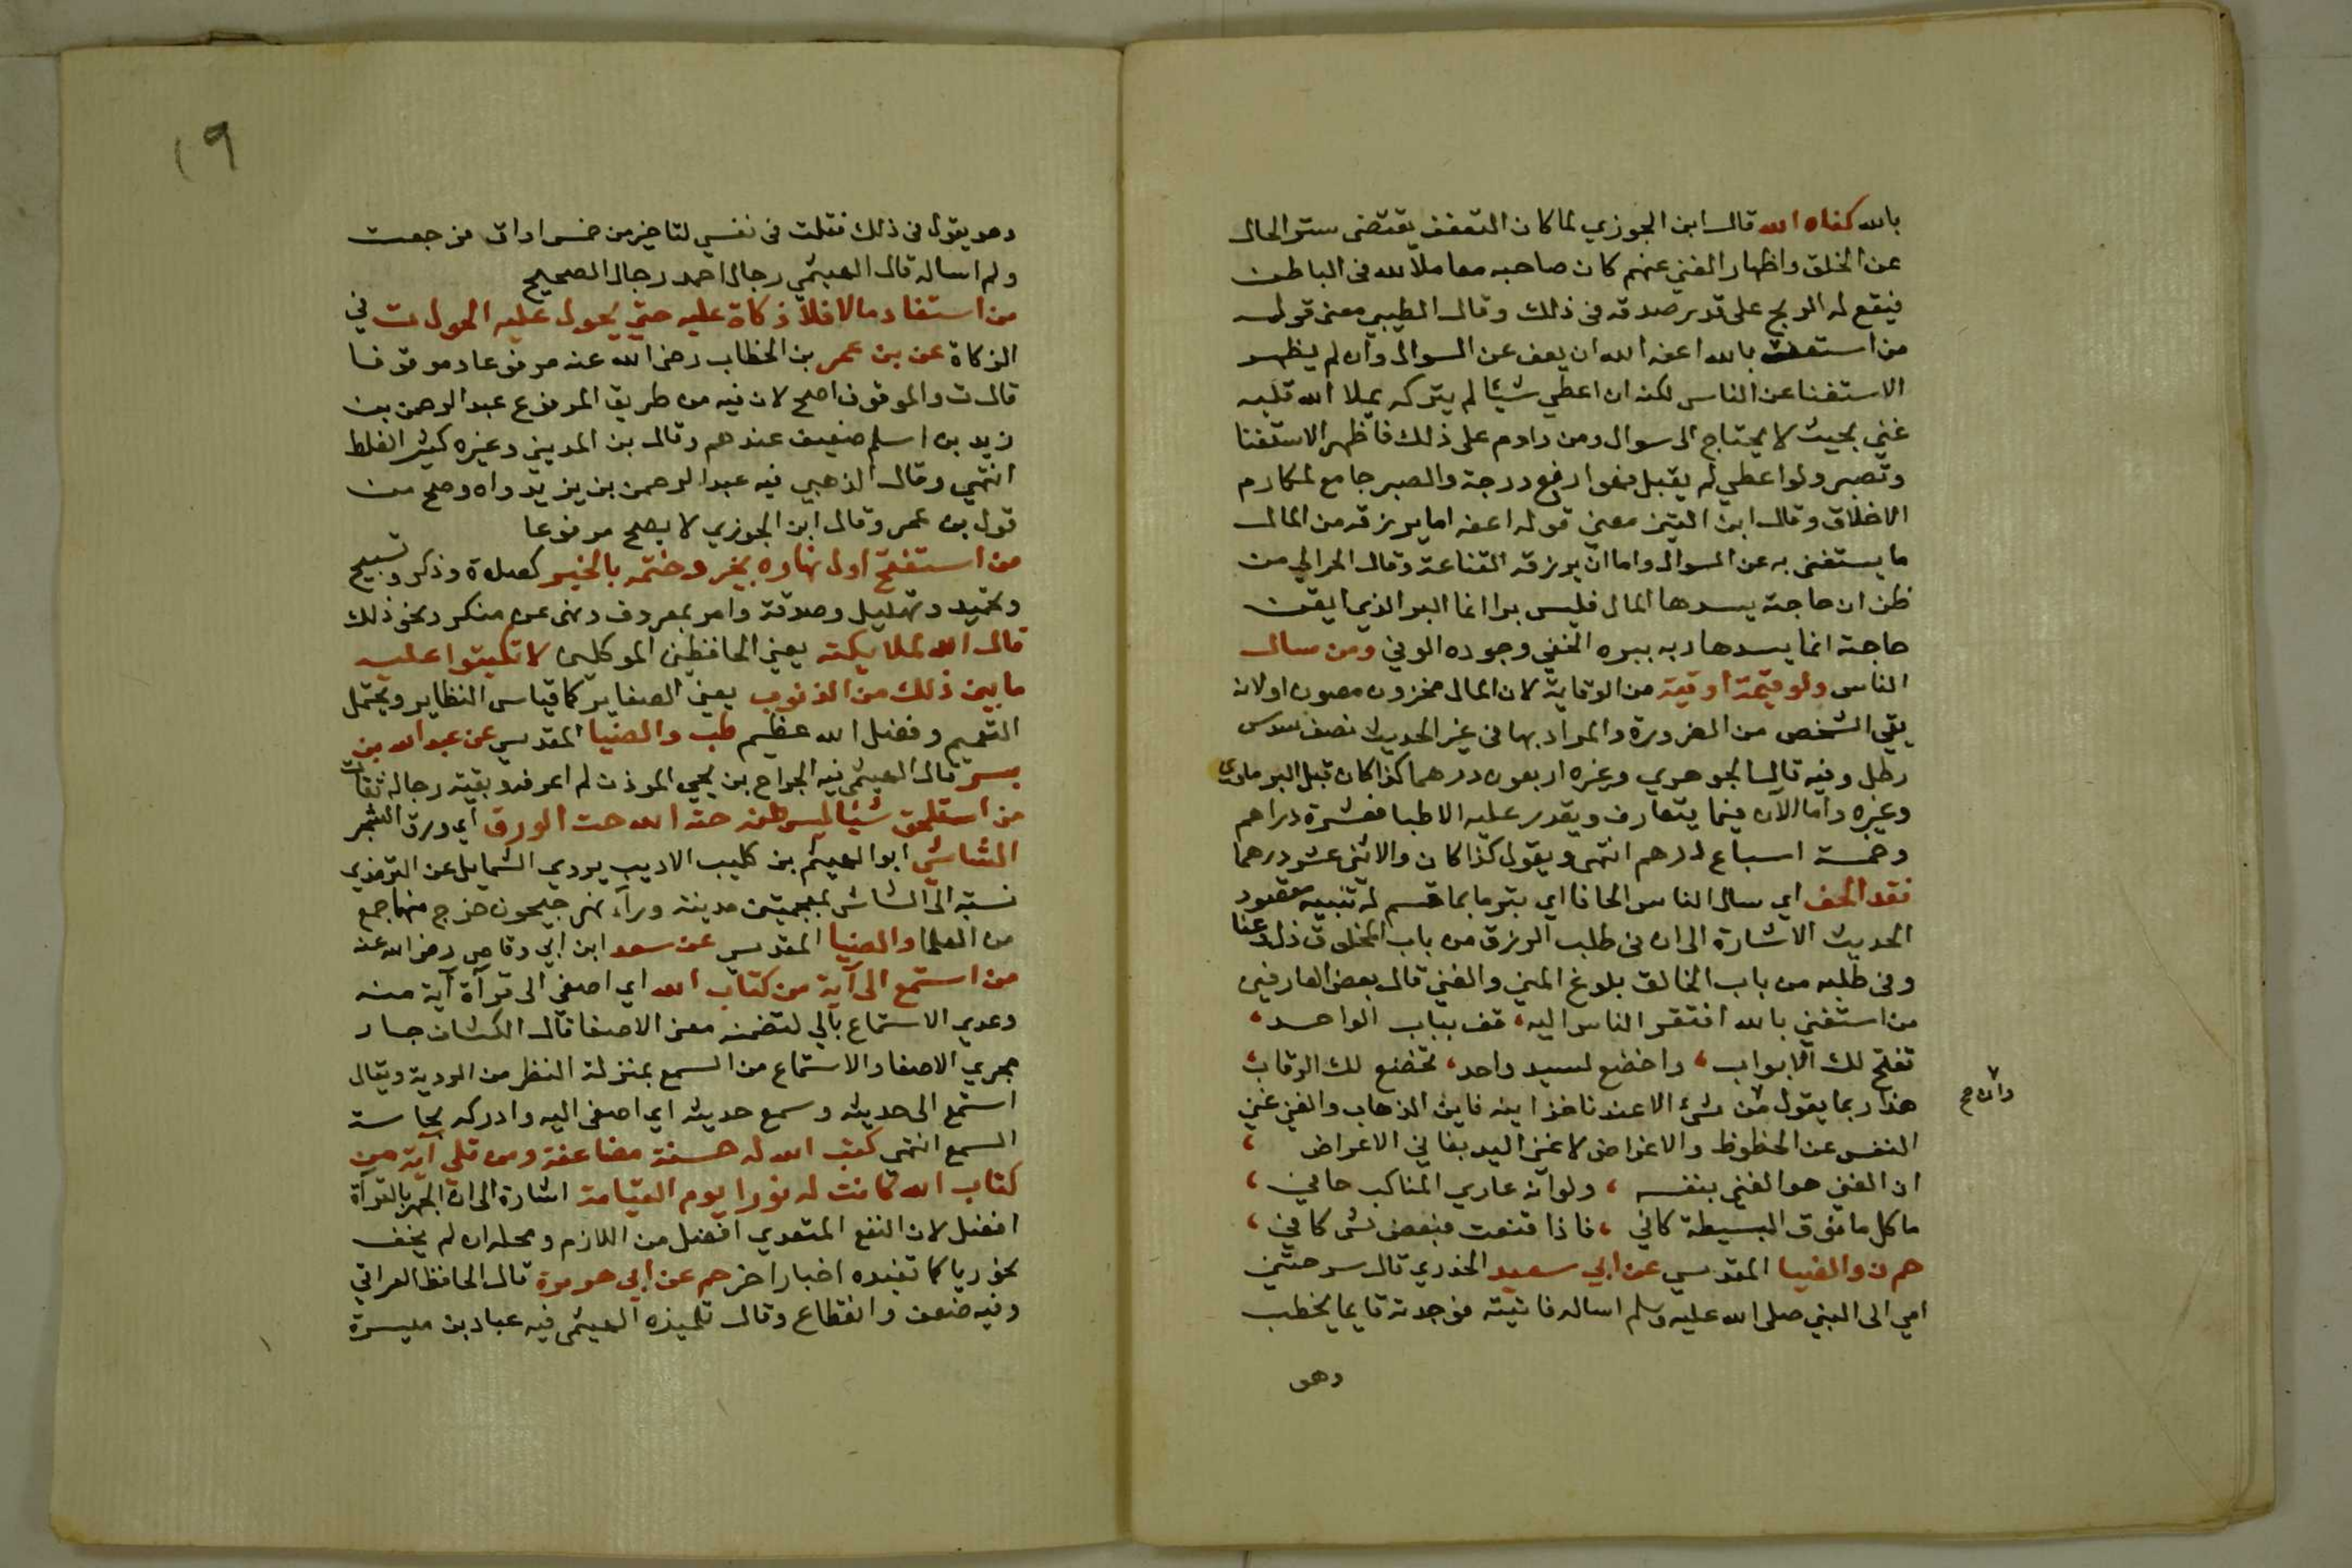 بالله كفاه الله قال ابن الجوزي لما كان التعفف يقتضى ستر الحال
عن الخلق واظهار الغني عنهم كان صاحبه معاملا لله فى الباطن
فيقع له الربح على قدر صدقه فى ذلك وقال الطيبي معنى قوله
من استعف بالله اعفه الله ان يعف عن السوال وان لم يظهر
الاستغنا عن الناس لكنه ان اعطي شيئا لم يتركه يملا الله قلبه
غني بحيث لا يحتاج الى سوال ومن داوم على ذلك فاظهر الاستغنا
وتصبر ولو اعطي لم يقبل فهو ارفع درجة والصبر جامع لمكارم
الاخلاق وقال ابن التين معنى قوله اعفه اما يرزقه من المال
ما يستغنى به عن السوال واما ان يرزقه القناعة وقال الحرالي من
ظن ان حاجته يسدها المال فليس برا انما البر الذي ايقن
حاجته انما يسدها ربه ببره الخفي وجوده الوفي ومن سال
الناس وله قيمة اوقية من الوقاية لان المال مخزون مصون اولانه
يقي الشخص من الضرورة والمراد بها فى غير الحديث نصف سدس
رطل وفيه قال الجوهري وغيره اربعون درهما كذا كان قبل البرماوي
وغيره واما الان فيما يتعارف ويقدر عليه الاطبا فعشرة دراهم
وخمسة اسباع درهم انتهى ويقول كذا كان والاثني عشر درهما
فقد الحف اي سال الناس الحافا اي تبرما بما قسم له تنبيه مقصود
الحديث الاشارة الى ان فى طلب الرزق من باب المخلوق ذل وعنا
وفى طلبه من باب الخالق بلوغ المني والغني قال بعض العارفين
من استغني بالله افتقر الناس اليه، قف بباب الواحد،
تفتح لك الابواب، واخضع لسيد واحد، تخضع لك الرقاب
هذا ربما يقول من شيء الا عندنا خزاينه فاين الذهاب والغني غني
وان صح
النفس عن الحظوظ والاغراض لا غني اليد بفاني الاعراض ،
ان الغني هو الغني بنفسه ، ولو انه عاري المناكب حافي ،
ما كل ما فوق البسيطة كافي ، فاذا قنعت فبعض شي كافي ،
حم ن والضيا المقدسي عن ابي سعيد الخدري قال سرحتني
امي الى النبي صلى الله عليه وسلم اساله فاتيته فوجدته قايما يخطب
وهو
١٩
وهو يقول فى ذلك فقلت فى نفسي لنا خير من خمس اواق فرجعت
ولم اساله قال الهيثمي رجال احمد رجال الصحيح
من استفاد مالا فلا زكاة عليه حتي يحول عليه الحول ت في
الزكاة عن بن عمر بن الخطاب رضى الله عنه مرفوعا وموقوفا
قال ت والموقوف اصح لان فيه من طريق المرفوع عبد الرحمن بن
زيد بن اسلم ضعيف عندهم وقال بن المديني وغيره كثير الغلط
انتهي وقال الذهبي فيه عبد الرحمن بن يزيد واه وصح من
قول بن عمر وقال ابن الجوزي لا يصح مرفوعا
من استفتح اول نهاره بخير وختمه بالخير كصلاة وذكر وتسبيح
وتحميد وتهليل وصدقة وامر بمعروف ونهى عن منكر ونحو ذلك
قال الله لملايكته يعني الحافظين الموكلين لا تكتبوا عليه
ما بين ذلك من الذنوب يعني الصغاير كما قياس النظاير ويحتمل
التعميم وفضل الله عظيم طب والضيا المقدسي عن عبد الله بن
بسر قال الهيثمي فيه الجراح بن يحيي الموذن لم اعرفه وبقية رجاله ثقات
من استلحق شيئا ليس منه حته الله حت الورق اي ورق الشجر
الشاشي ابو الهيثم بن كليب الاديب يروي الشمايل عن الترمذي
نسبة الى الشاش بمعجمتين مدينة ورآء نهر جيحون خرج منها جمع
من العلما والضيا المقدسي عن سعد ابن ابي وقاص رضى الله عنه
من استمع الى آية من كتاب الله اي اصغي الى قرآة آية منه
وعدي الاستماع بالي لتضمنه معنى الاصغا قال الكشاف جار
مجري الاصغا والاستماع من السمع بمنزلة النظر من الروية ويقال
استمع الى حديثه وسمع حديثه اي اصغى اليه وادركه بحاسة
السمع انتهى كتب الله له حسنة مضاعفة ومن تلى آية من
كتاب الله كانت له نورا يوم القيامة اشارة الى ان الجهر بالقرآة
افضل لان النفع المتعدي افضل من اللازم ومحله ان لم يخف
نحو ريا كما تفيده اخبار اخر حم عن ابي هريرة قال الحافظ العراقي
وفيه ضعف وانقطاع وقال تلميذه الهيثمى فيه عباد بن ميسرة